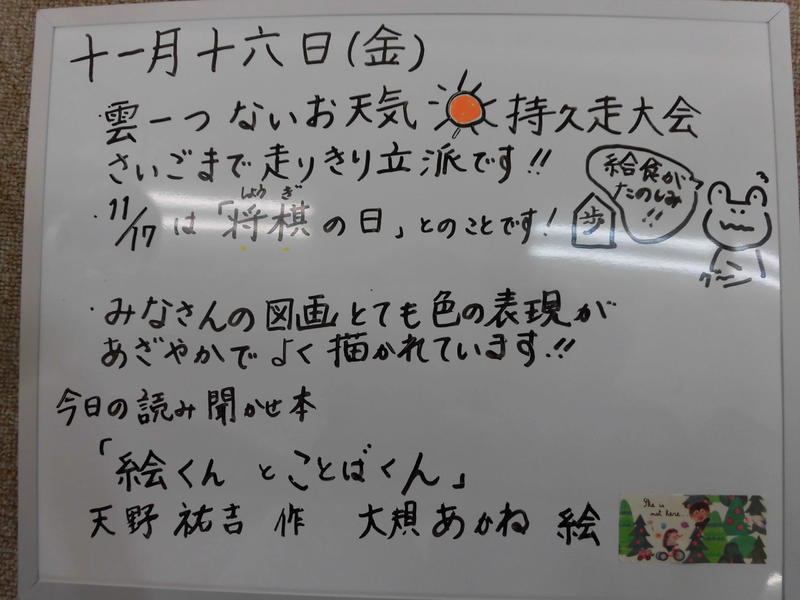 十一月十六日(金)
・雲一つないお天気 持久走大会
さいごまで走りきり立派です!!
給食が
たのしみ
!!
しょうぎ
・11/17は「将棋の日」とのことです!
歩
グ〜
・みなさんの図画とても色の表現が
あざやかでよく描かれています!!
今日の読み聞かせ本
「絵くんとことばくん」
天野祐吉 作 大槻あかね 絵
She is
not here...